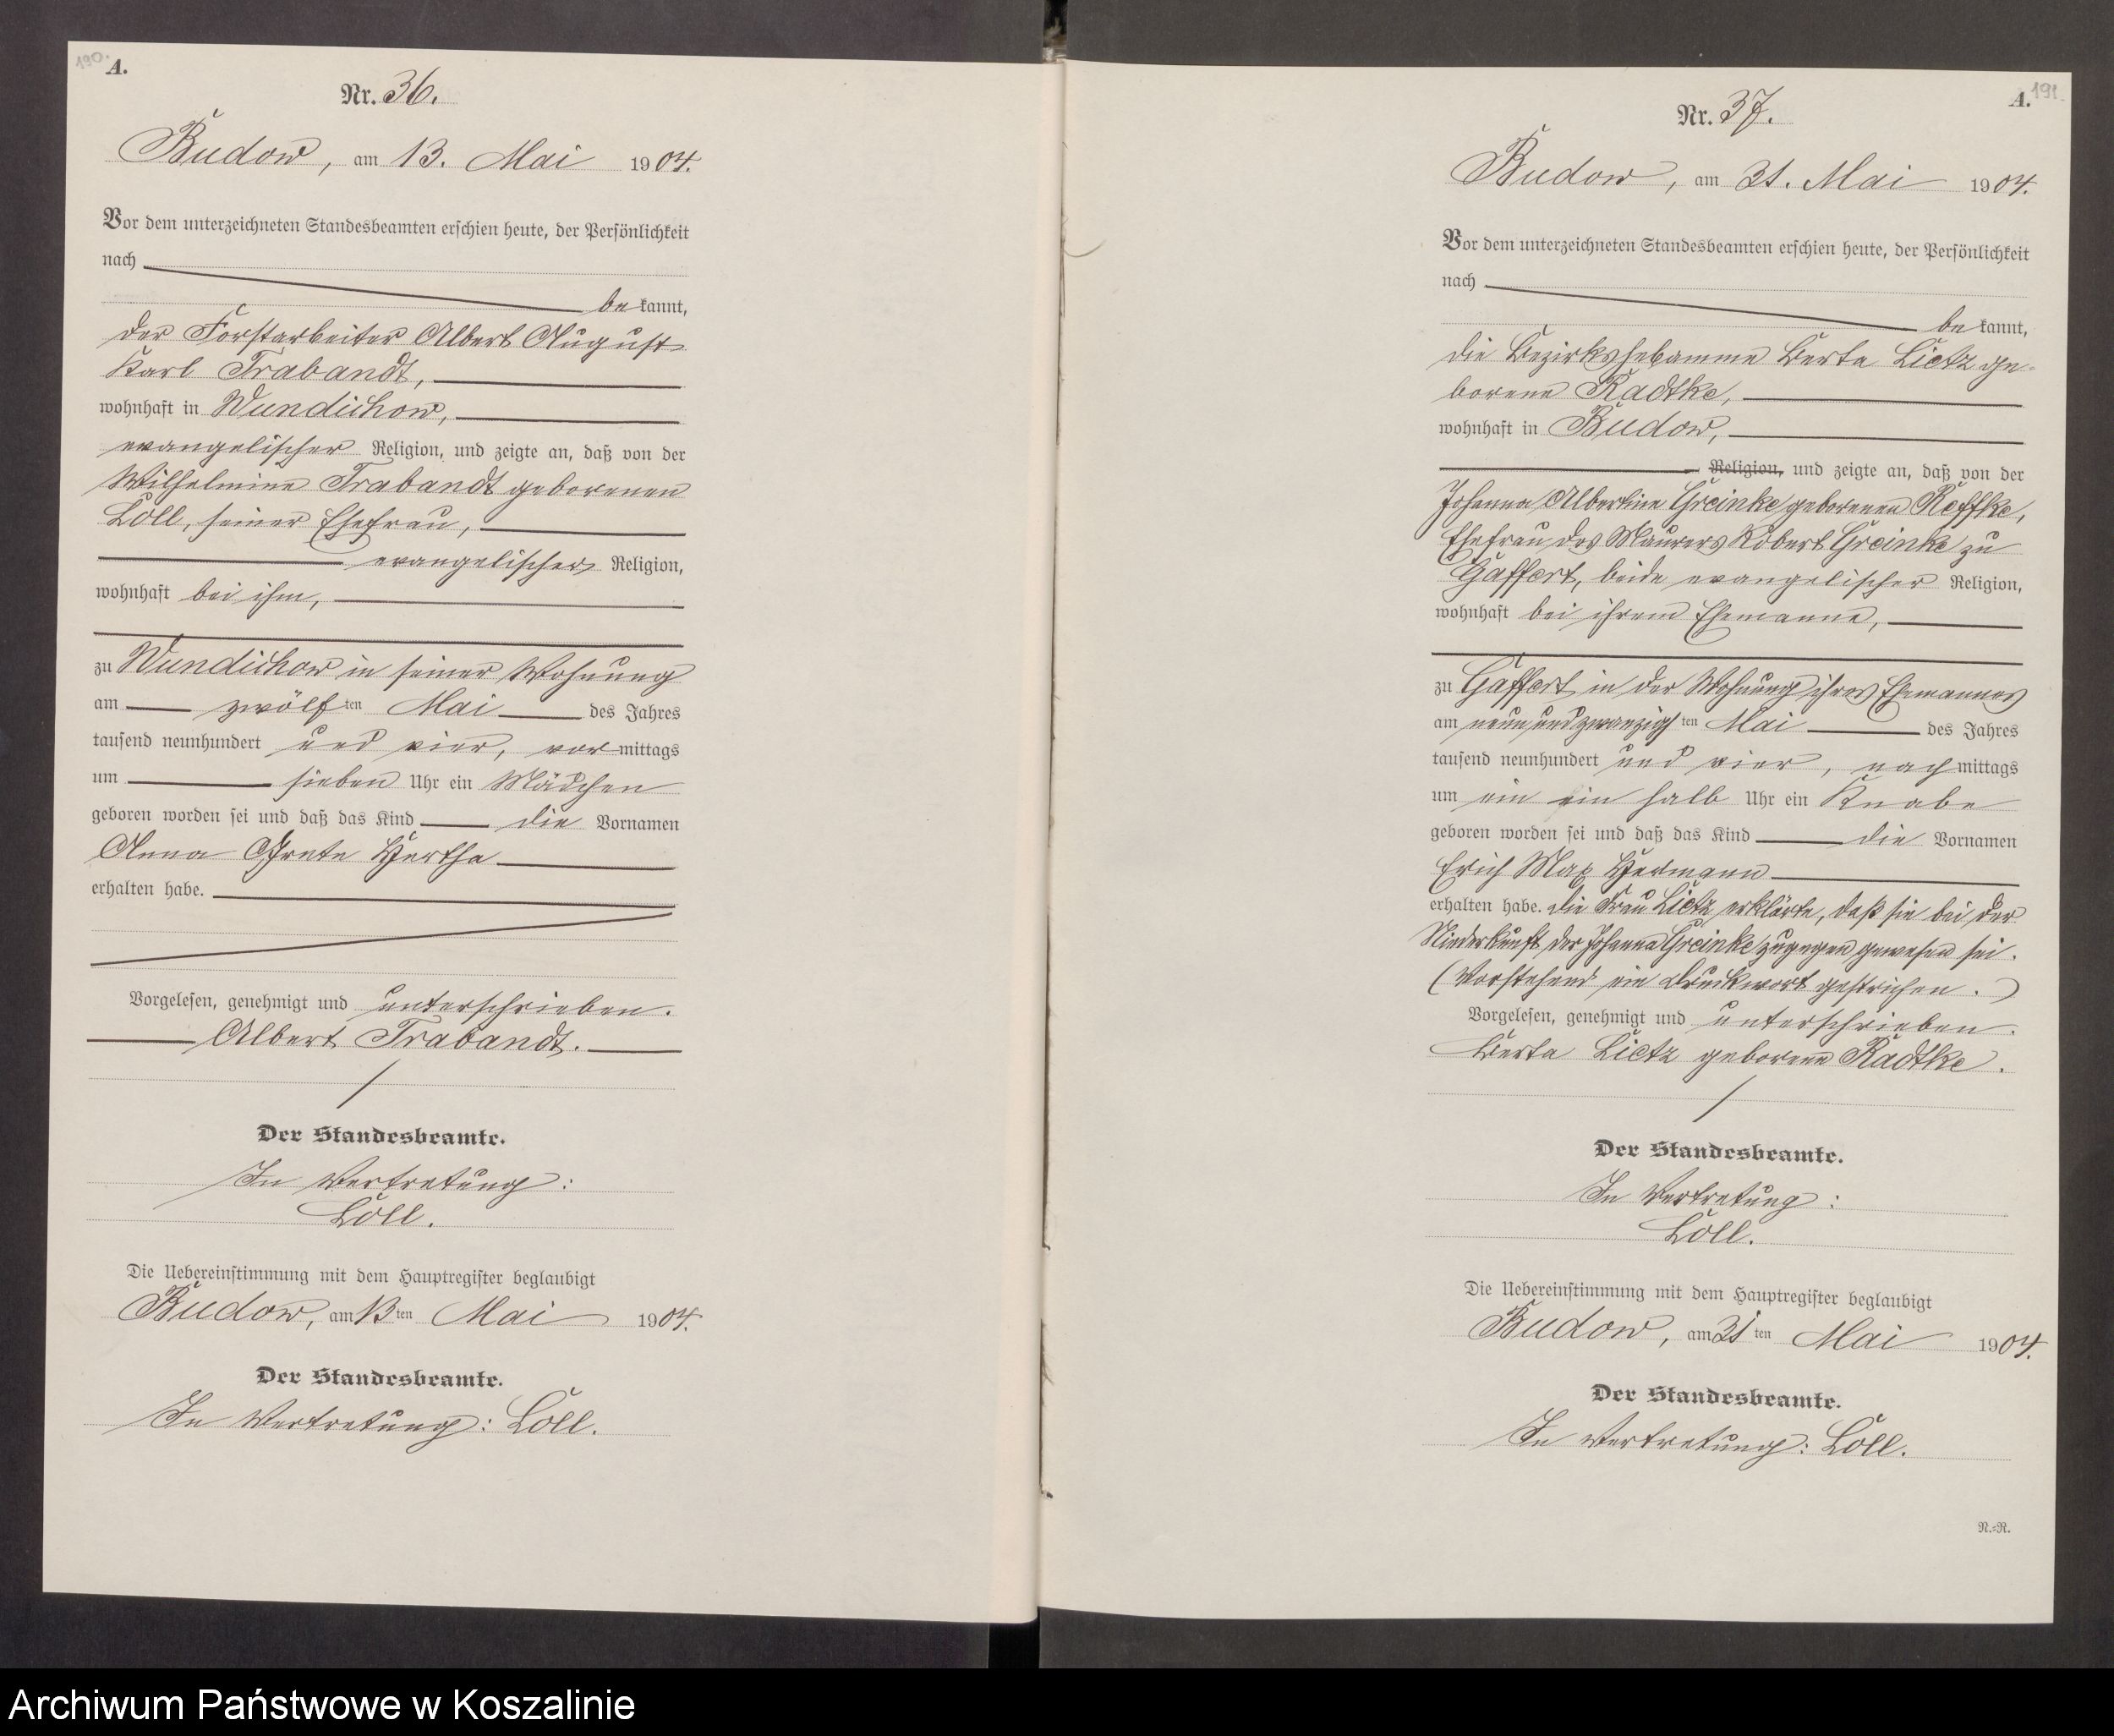 190.
A.
Nr. 36.
Budow, am 13. Mai 1904.
Vor dem unterzeichneten Standesbeamten erschien heute, der Persönlichkeit
nach
bekannt,
der Forstarbeiter Albert August
Karl Trabandt,
wohnhaft in Wundichow,
evangelischer Religion, und zeigte an, daß von der
Wilhelmine Trabandt geborenen
Löll, seiner Ehefrau,
evangelischer Religion,
wohnhaft bei ihm,
zu Wundichow in seiner Wohnung
am zwölften Mai des Jahres
tausend neunhundert und vier, vormittags
um sieben Uhr ein Mädchen
geboren worden sei und daß das Kind die Vornamen
Anna Grete Hertha
erhalten habe.
Vorgelesen, genehmigt und unterschrieben.
Albert Trabandt.
Der Standesbeamte.
In Vertretung:
Löll.
Die Uebereinstimmung mit dem Hauptregister beglaubigt
Budow, am 13ten Mai 1904.
Der Standesbeamte.
In Vertretung: Löll.
191
A.
Nr. 37.
Budow, am 31. Mai 1904.
Vor dem unterzeichneten Standesbeamten erschien heute, der Persönlichkeit
nach
bekannt,
die Bezirkshebamme Berta Lietz ge-
borene Radtke,
wohnhaft in Budow,
Religion, und zeigte an, daß von der
Johanna Albertine Greinke geborenen Reffke,
Ehefrau des Maurers Robert Greinke zu
Gaffert, beide evangelischer Religion,
wohnhaft bei ihrem Ehemanne,
zu Gaffert in der Wohnung ihres Ehemannes
am neunundzwanzigsten Mai des Jahres
tausend neunhundert und vier, nachmittags
um ein ein halb Uhr ein Knabe
geboren worden sei und daß das Kind die Vornamen
Erich Max Hermann
erhalten habe. Die Frau Lietz erklärte, daß sie bei der
Niederkunft der Johanna Greinke zugegen gewesen sei.
(Vorstehend ein Druckwort gestrichen.)
Vorgelesen, genehmigt und unterschrieben.
Berta Lietz geborene Radtke.
Der Standesbeamte.
In Vertretung:
Löll.
Die Uebereinstimmung mit dem Hauptregister beglaubigt
Budow, am 31ten Mai 1904.
Der Standesbeamte.
In Vertretung: Löll.
N.-R.
Archiwum Państwowe w Koszalinie